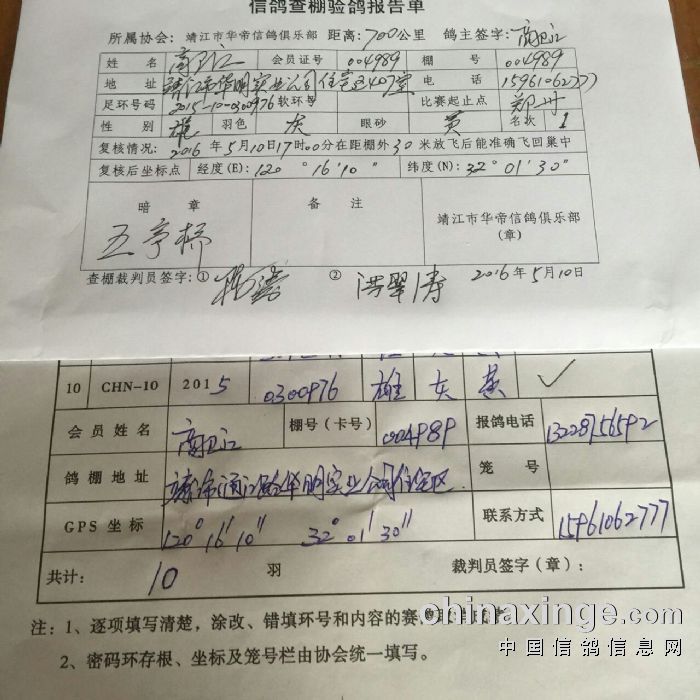 信鸽查棚验鸽报告单
所属协会: 靖江市华帝信鸽俱乐部 距离: 700公里 鸽主签字: 高卫江
姓名 高卫江 会员证号 004989 棚号 004989
地址 靖江市华明实业公司住宅区407室 电话 15961062777
足环号码 2015-10-0300976 软环号 比赛起止点 郑州
性别 雄 羽色 灰 眼砂 黄 名次 1
复核情况: 2016年5月10日17时00分在距棚外30米放飞后能准确飞回巢中
复核后坐标点 经度(E): 120°16′10″ 纬度(N): 32°01′30″
暗章 备注 靖江市华帝信鸽俱乐部
五亭桥 (章)
查棚裁判员签字: ① ② 洪翠涛 2016年5月10日
10 CHN-10 2015 0300976 雄 灰 黄 ✓
会员姓名 高卫江 棚号(卡号) 004989 报鸽电话 13228756592
鸽棚地址 靖江市通江路华明实业公司住宅区. 笼号
GPS坐标 120°16′10″ 32°01′30″ 联系方式 15961062777
共计: 10 羽 裁判员签字(章):
注: 1、逐项填写清楚,涂改、错填环号和内容的赛
2、密码环存根、坐标及笼号栏由协会统一填写。
chinaxinge.com
中国信鸽信息网